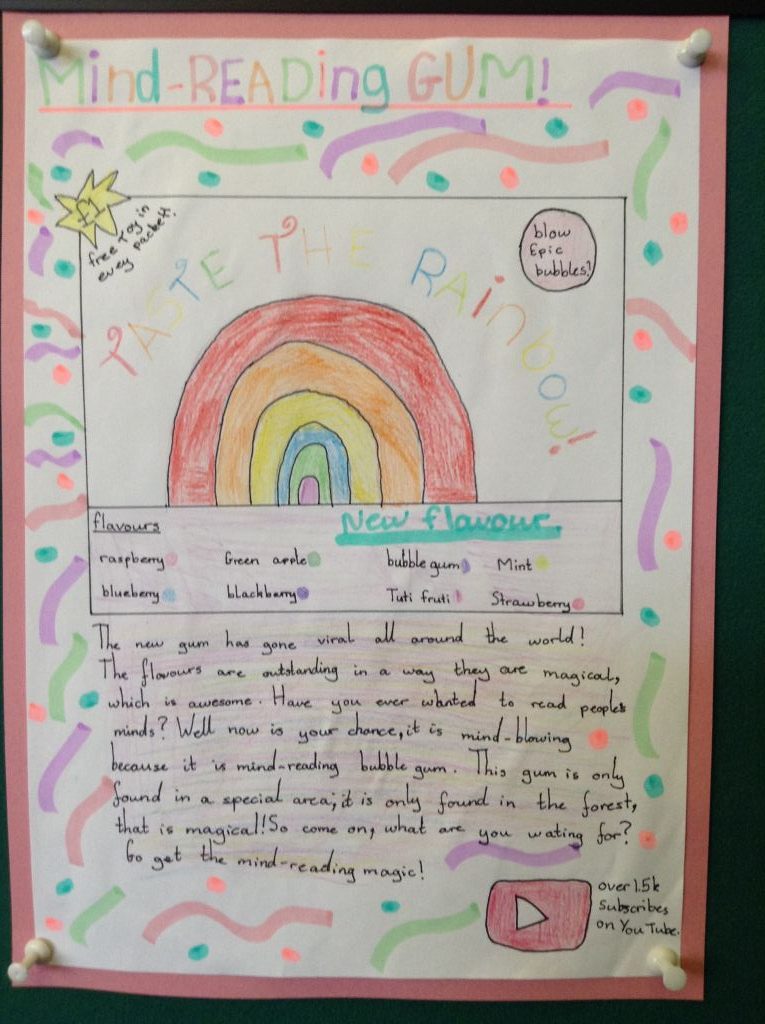 Mind-READing GUM!
£1
free Toy in
every packet!
TASTE THE RAinbow!
blow
Epic
bubbles!
flavours
New flavour.
raspberry Green apple bubble gum Mint
blueberry blackberry Tuti fruti Strawberry
The new gum has gone viral all around the world!
The flavours are outstanding in a way they are magical,
which is awesome. Have you ever wanted to read people's
minds? Well now is your chance, it is mind-blowing
because it is mind-reading bubble gum. This gum is only
found in a special area; it is only found in the forest,
that is magical! So come on, what are you wating for?
Go get the mind-reading magic!
over 1.5k
Subscribes
on YouTube.